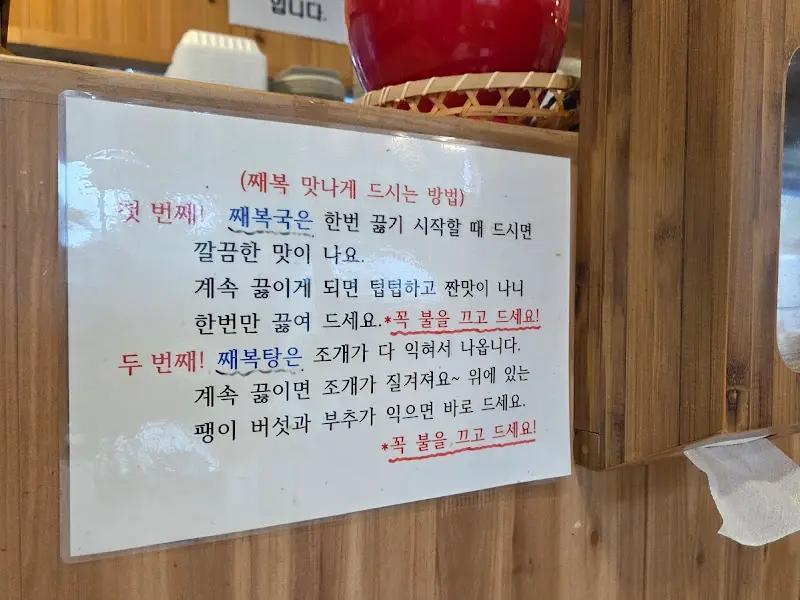 입니다.
(째복 맛나게 드시는 방법)
첫 번째! 째복국은 한번 끓기 시작할 때 드시면
깔끔한 맛이 나요.
계속 끓이게 되면 텁텁하고 짠맛이 나니
한번만 끓여 드세요.*꼭 불을 끄고 드세요!
두 번째! 째복탕은 조개가 다 익혀서 나옵니다.
계속 끓이면 조개가 질겨져요~ 위에 있는
팽이 버섯과 부추가 익으면 바로 드세요.
*꼭 불을 끄고 드세요!